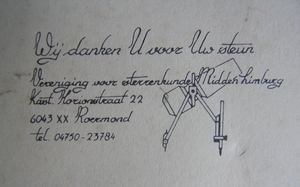 Wij danken U voor Uw steun
Vereniging voor sterrenkunde Midden Limburg
Kast. Horionstraat 22
6043 XX Roermond
tel. 04750-23784